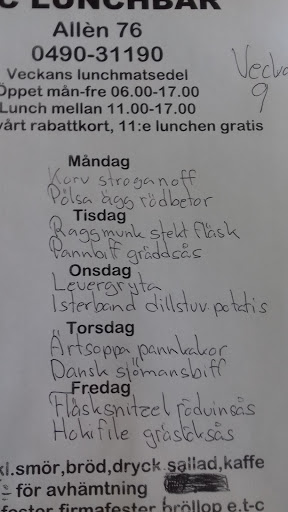 C LUNCHBAR
Allèn 76
0490-31190
Veckans lunchmatsedel
Öppet mån-fre 06.00-17.00
Lunch mellan 11.00-17.00
vårt rabattkort, 11:e lunchen gratis
Vecka
9
Måndag
Korv stroganoff
Pölsa ägg rödbetor
Tisdag
Raggmunk stekt fläsk
Pannbiff gräddsås
Onsdag
Levergryta
Isterband dillstuv. potatis
Torsdag
Ärtsoppa pannkakor
Dansk sjömansbiff
Fredag
Fläsksnitzel rödvinsås
Hokifile gräslöksås
kl.smör,bröd,dryck sallad,kaffe
:- för avhämtning
fester firmafester bröllop e.t-c